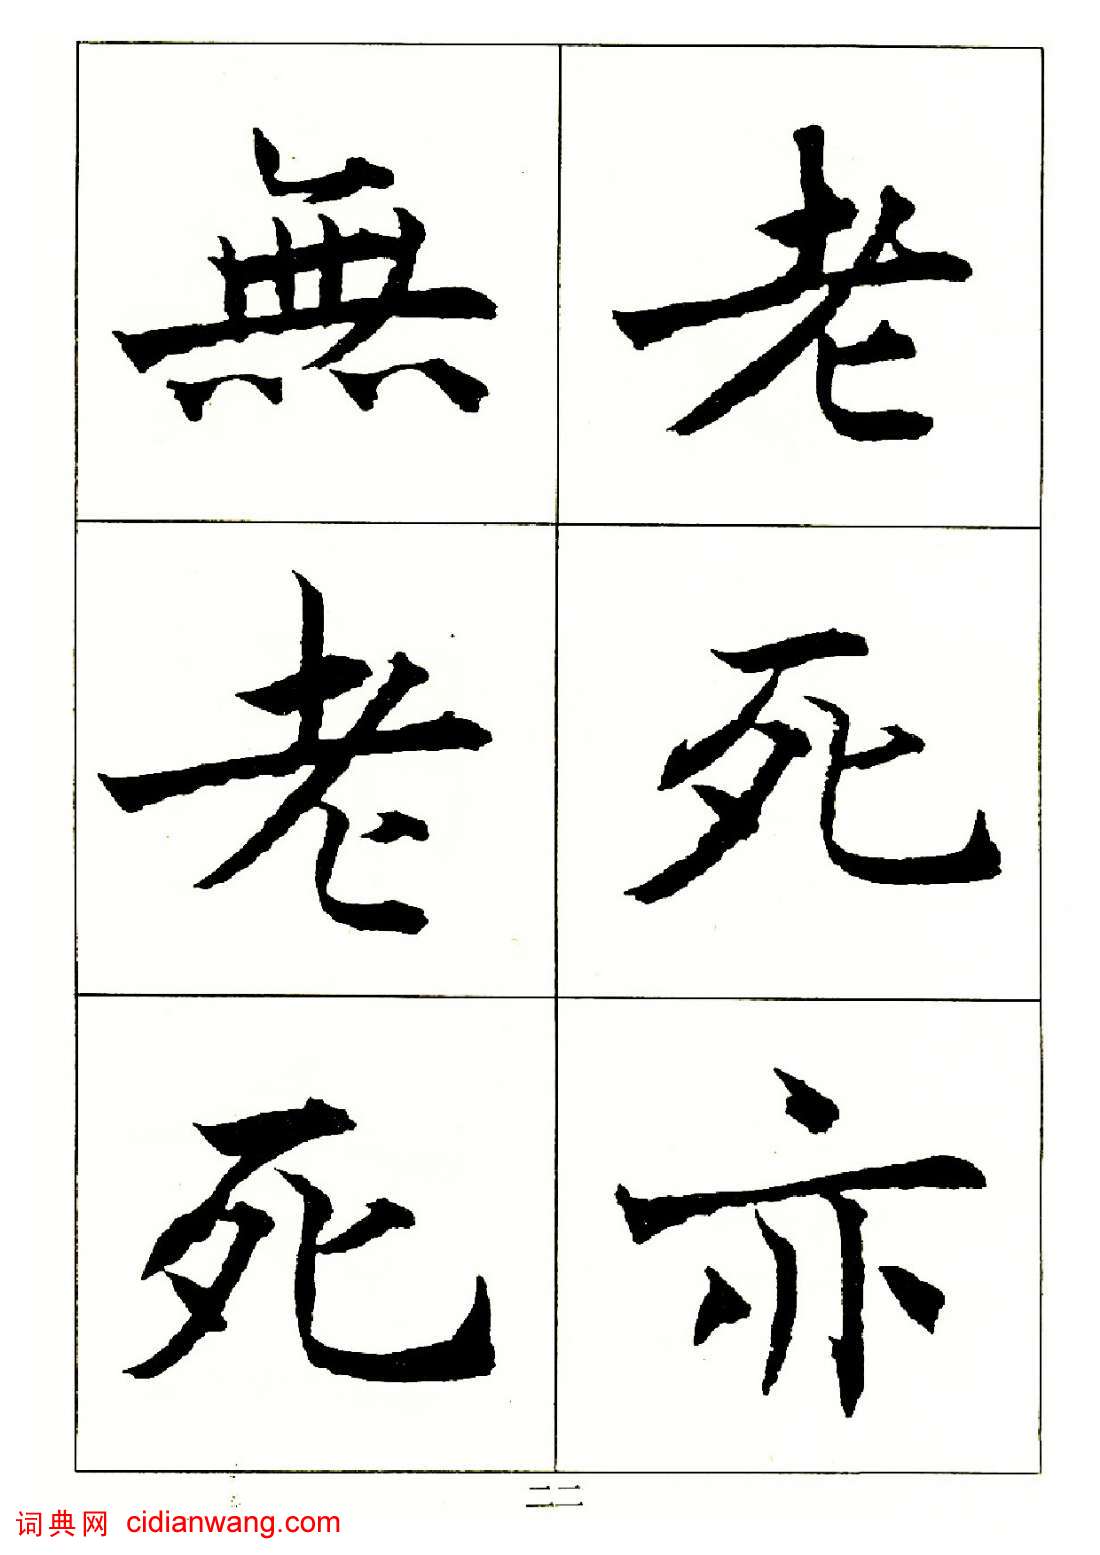 老死亦
無老死
二二
词典网 cidianwang.com